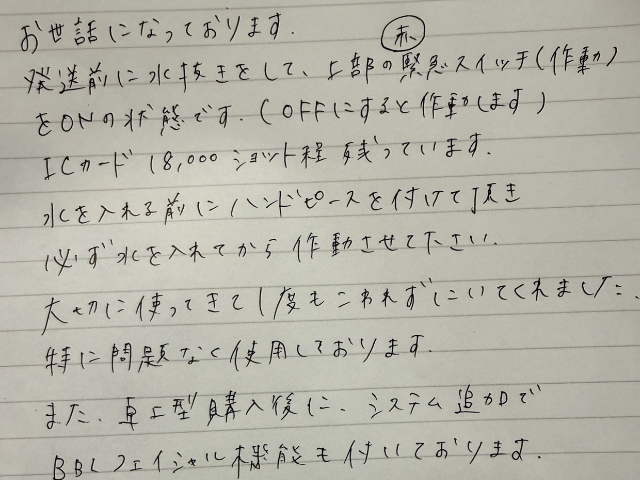 お世話になっております.
発送前に水抜きをして、上部の緊急スイッチ(作動)
赤
をONの状態です.(OFFにすると作動します)
ICカード 18,000ショット程 残っています.
水を入れる前にハンドピースを付けて頂き
必ず水を入れてから作動させて下さい.
大切に使ってきて1度もこわれずにいてくれました.
特に問題なく使用しております.
また、卓上型購入後に、システム追加で
BBLフェイシャル機能も付いております.